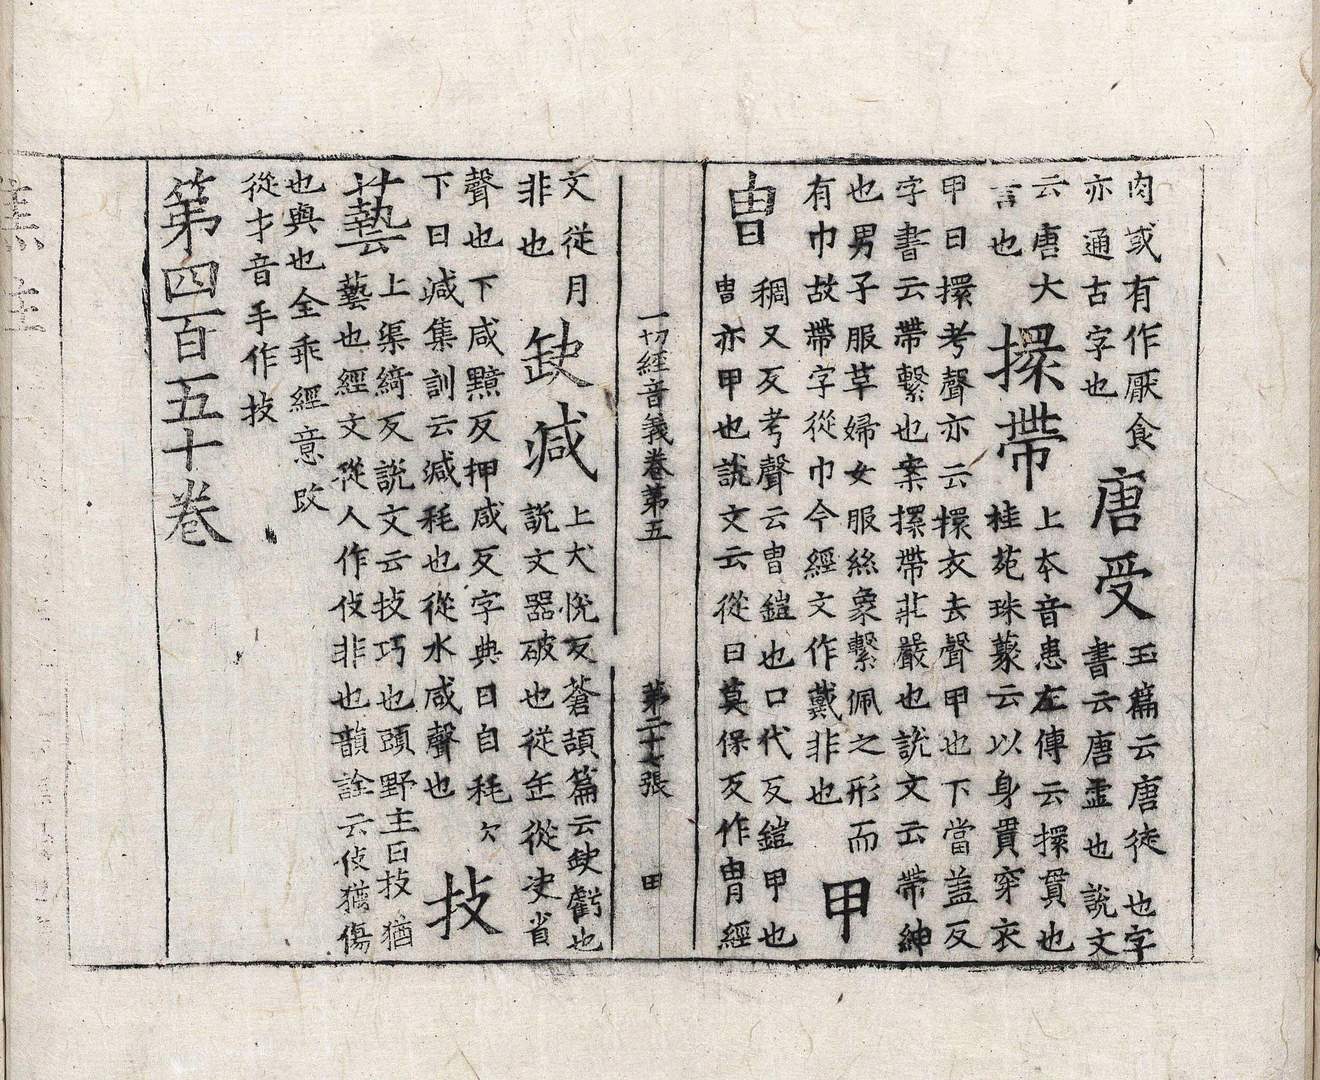 肉或有作厭食
亦通古字也
唐受
玉篇云唐徒也字
書云唐虛也說文
云唐大
言也
擐帶
上本音患左傳云擐貫也
桂苑珠藂云以身貫穿衣
甲曰擐考聲亦云擐衣去聲甲也下當蓋反
字書云帶繫也案擐帶莊嚴也說文云帶紳
也男子服革婦女服絲象繫佩之形而
有巾故帶字從巾今經文作戴非也
甲
冑
稠又反考聲云冑鎧也口代反鎧甲也
冑亦甲也說文云從曰莫保反作冑經
一切經音義卷第五
第二十七張
甲
文從月
非也
缺減
上犬悅反蒼頡篇云缺虧也
說文器破也從缶從決省
聲也下咸黯反押咸反字典曰自秏欠
下曰減集訓云減秏也從水咸聲也
技
藝
上渠綺反說文云技巧也顧野王曰技猶
藝也經文從人作伎非也韻詮云伎猶傷
也與也全乖經意改
從才音手作技
第四百五十卷